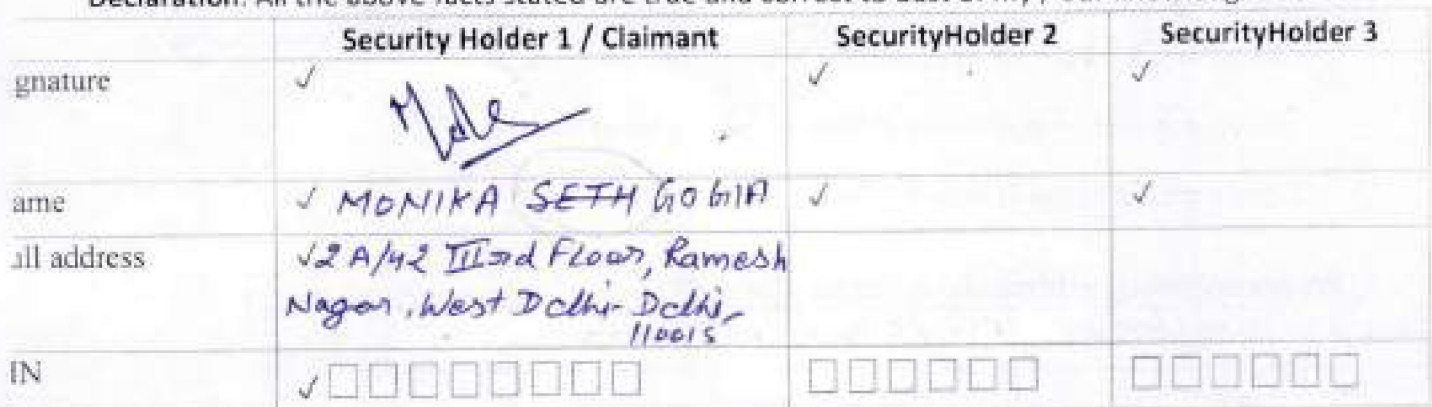 Declaration: All the above facts stated are true and correct to best of my / our knowledge
Security Holder 1 / Claimant SecurityHolder 2 SecurityHolder 3
gnature ✓ ✓ ✓
ame ✓ MONIKA SETH GOGIA ✓ ✓
all address ✓2A/42 IIIrd Floor, Ramesh
Nagar, West Delhi- Delhi-
110015
IN ✓